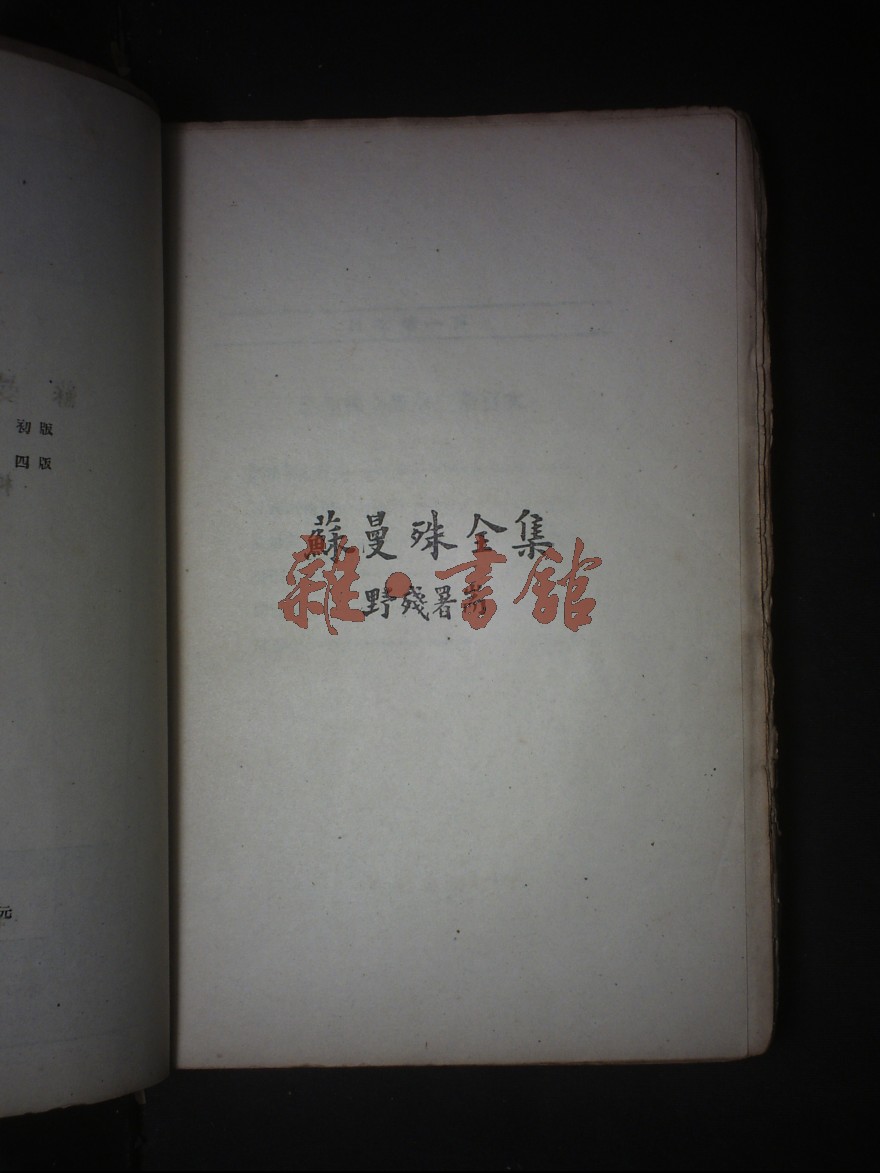 蘇曼殊全集
野殘署耑
雜·書館
初版
四版
元